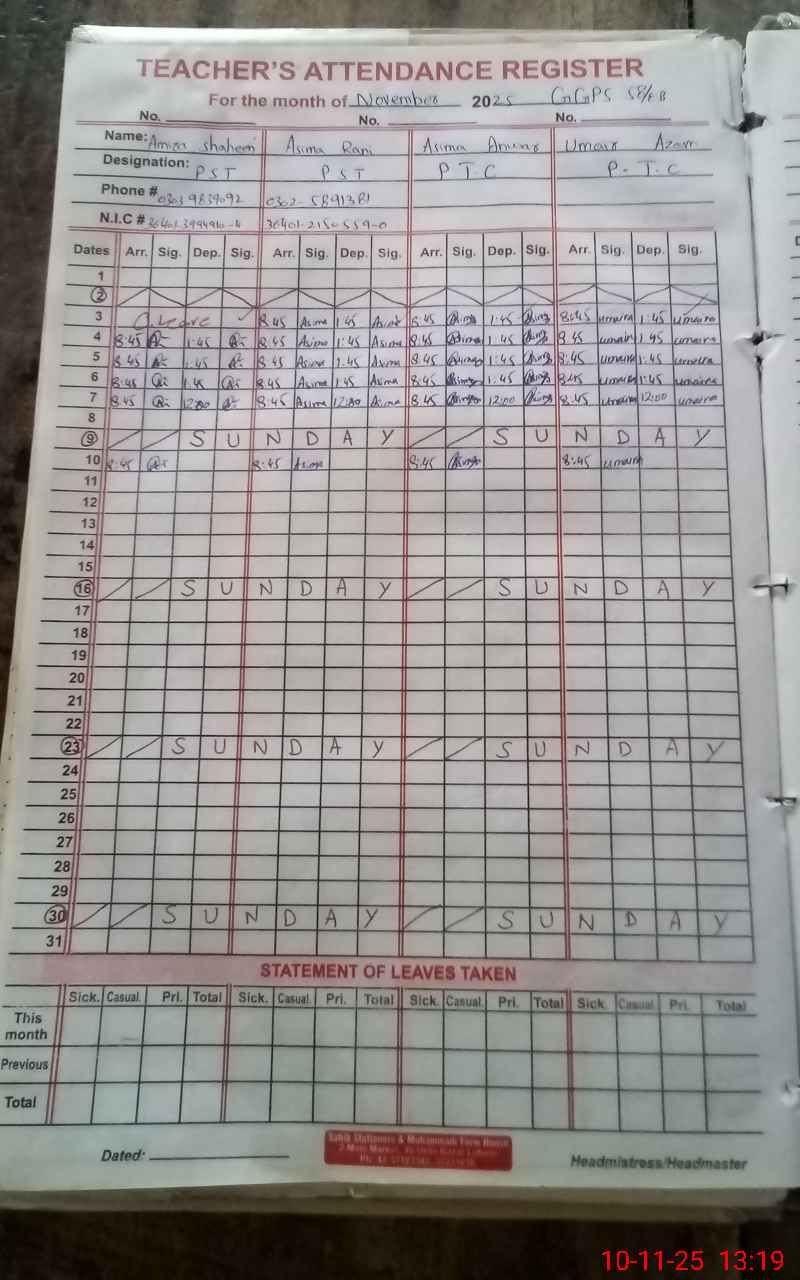 TEACHER'S ATTENDANCE REGISTER
For the month of November 2025 GGPS 58/EB
No. No. No.
Name: Amina Shaheen Asima Rani Asima Anwar Umaira Azam
Designation: PST PST P T C P. T. C
Phone # 0303 9839092 0302-
N.I.C # 36401-2150559-0
Dates Arr. Sig. Dep. Sig. Arr. Sig. Dep. Sig. Arr. Sig. Dep. Sig. Arr. Sig. Dep. Sig.
1
2
3 C. Leave 8:45 Asima 1:45 Asima 8:45 Asima 1:45 Asima 8:45 umaira 1:45 umaira
4 8:45 1:45 8:45 Asima 1:45 Asima 8:45 Asima 1:45 Asima 8:45 umaira 1:45 umaira
5 8:45 1:45 8:45 Asima 1:45 Asima 8:45 Asima 1:45 Asima 8:45 umaira 1:45 umaira
6 8:45 1:45 8:45 Asima 1:45 Asima 8:45 Asima 1:45 Asima 8:45 umaira 1:45 umaira
7 8:45 12:00 8:45 Asima 12:00 Asima 8:45 Asima 12:00 Asima 8:45 umaira 12:00 umaira
8
9 S U N D A Y S U N D A Y
10 8:45 8:45 Asima 8:45 Asima 8:45 umaira
11
12
13
14
15
16 S U N D A Y S U N D A Y
17
18
19
20
21
22
23 S U N D A Y S U N D A Y
24
25
26
27
28
29
30 S U N D A Y S U N D A Y
31
STATEMENT OF LEAVES TAKEN
Sick. Casual. Pri. Total Sick. Casual. Pri. Total Sick. Casual. Pri. Total Sick. Casual. Pri. Total
This month
Previous
Total
Dated: Headmistress/Headmaster
10-11-25 13:19